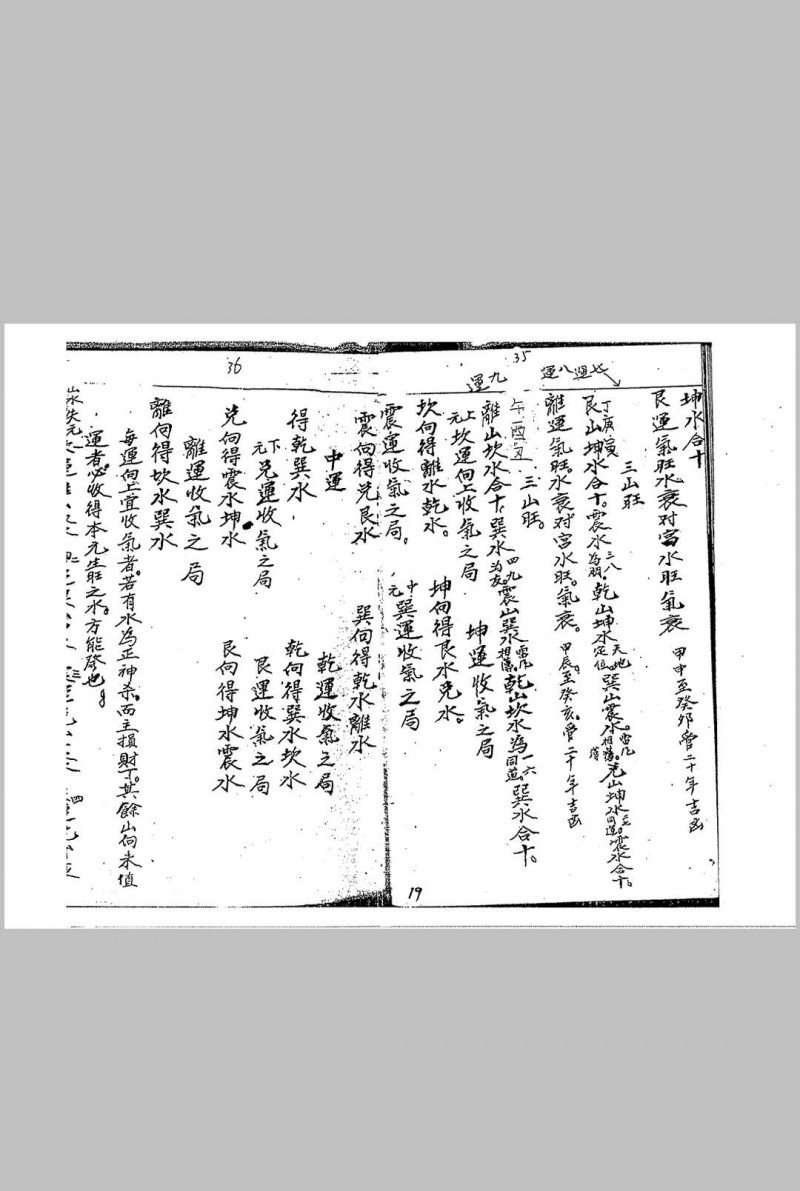 35
七運
八運
九運
坤水合十
艮運氣旺水衰对宮水旺氣衰 甲申至癸卯管二十年吉凶
三山旺
丁庚寅
艮山坤水合十。震水三八為朋。乾山坤水天地定位。巽山震水雷風相薄。兌山坤水同道。震水合十。
離運氣旺水衰对宮水旺。氣衰。甲辰至癸亥。管二十年吉凶
午酉丑
三山旺。
離山坎水合十。巽水四九為友。震山巽水雷風相薄。乾山坎水為一六同。巽水合十。
上元坎運向上收氣之局 坤運收氣之局
坎向得離水乾水。 坤向得艮水兌水。
震運收氣之局。 中元巽運收氣之局
19
36
震向得兌艮水 巽向得乾水離水
中運 乾運收氣之局
得乾巽水 乾向得巽水坎水
下元兌運收氣之局 艮運收氣之局
兌向得震水坤水 艮向得坤水震水
離運收氣之局
離向得坎水巽水
每運向上宜收氣者。若有水為正神杀。而主損財丁。其餘山向未值
運者。必收得本元生旺之水。方能發也。